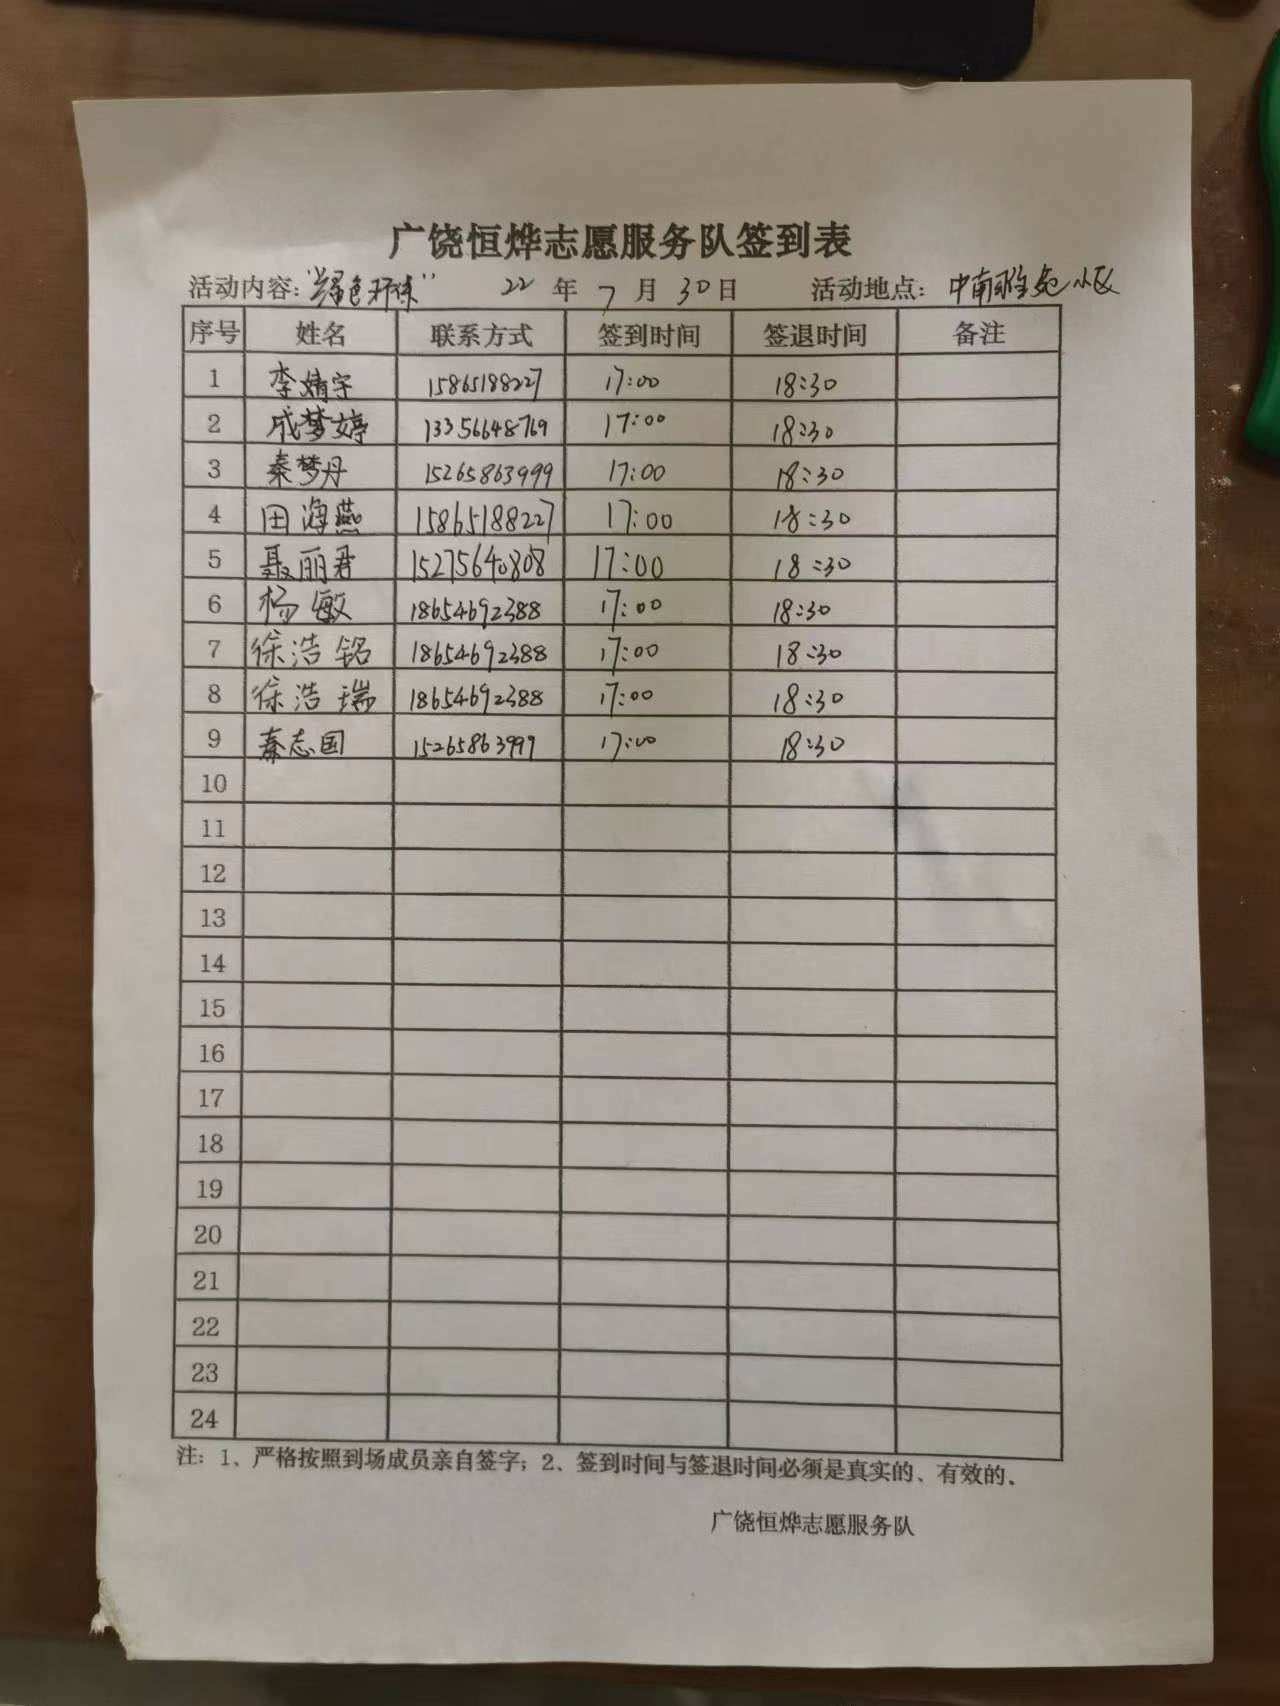 广饶恒烨志愿服务队签到表
活动内容：“绿色环保” 22年7月30日 活动地点：中南 苑小区
序号 姓名 联系方式 签到时间 签退时间 备注
1 李婧宇 15865188227 17:00 18:30
2 成梦婷 13356648769 17:00 18:30
3 秦梦丹 15265863999 17:00 18:30
4 田海燕 15865188227 17:00 18:30
5 聂丽君 15275640808 17:00 18:30
6 杨敏 18654692388 17:00 18:30
7 徐浩铭 18654692388 17:00 18:30
8 徐浩瑞 18654692388 17:00 18:30
9 秦志国 15265863999 17:00 18:30
10
11
12
13
14
15
16
17
18
19
20
21
22
23
24
注：1、严格按照到场成员亲自签字；2、签到时间与签退时间必须是真实的、有效的.
广饶恒烨志愿服务队